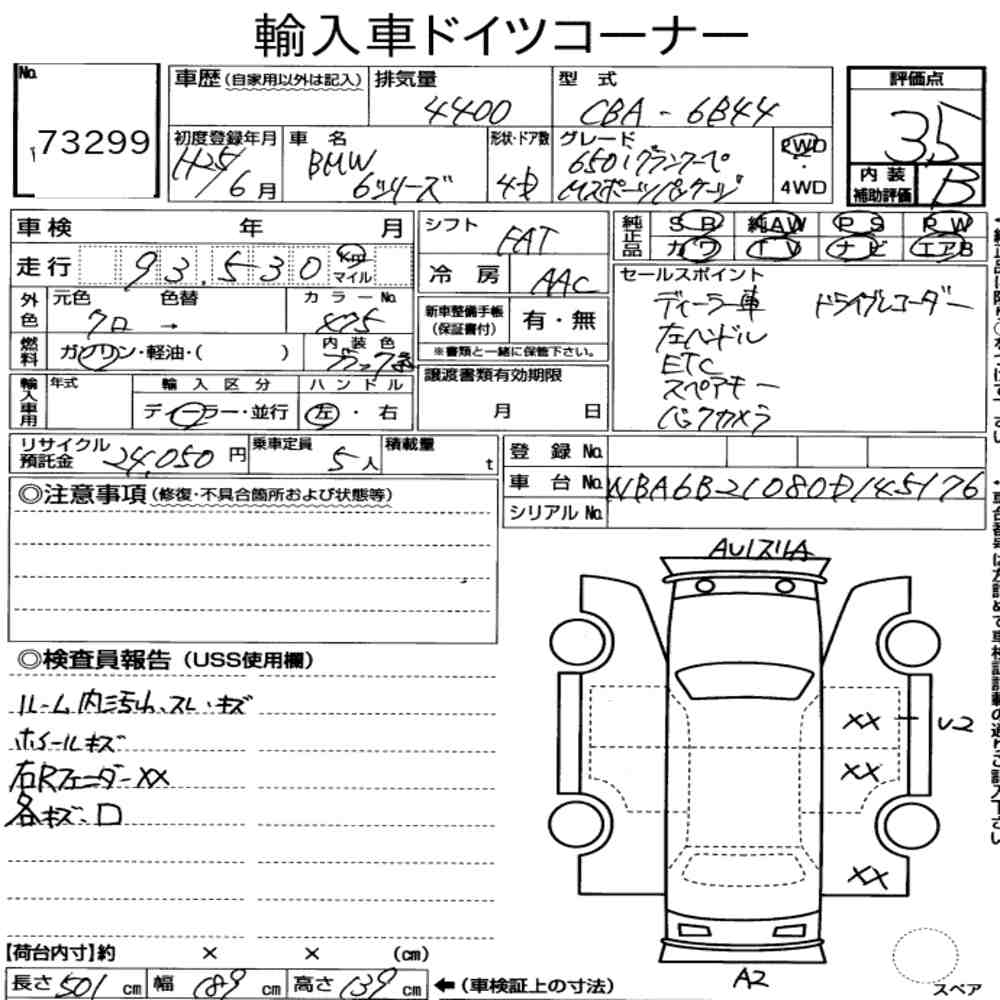 輸入車ドイツコーナー
No. 73299
車歴(自家用以外は記入)
排気量 4400
型式 CBA-6B44
評価点 3.5
初度登録年月 H25/6月
車名 BMW 6シリーズ
形状・ドア数 4D
グレード 650iグランクーペ
Mスポーツパッケージ
2WD
・
4WD
内装補助評価 B
車検 年 月
シフト FAT
純正品 SR 純AW PS PW
カワ TV ナビ エアB
走行 93,530 km マイル
冷房 AAC
セールスポイント
ディーラー車 ドライブレコーダー
左ハンドル
ETC
スペアキー
バックカメラ
外色 元色 クロ → 色替 カラーNo. 475
新車整備手帳(保証書付) 有・無
※書類と一緒に保管下さい。
燃料 ガソリン・軽油・( )
内装色
譲渡書類有効期限
月 日
輸入車用 年式 輸入区分 ハンドル
ディーラー・並行 左・右
リサイクル預託金 24,050円
乗車定員 5人
積載量 t
登録No.
車台No. WBA6B21080D145176
シリアルNo.
◎注意事項(修復・不具合箇所および状態等)
◎検査員報告(USS使用欄)
ルーム内汚れ、スレ・キズ
ホイールキズ
右Rフェンダー XX
各キズ・ロ
AU1スリA
XX U2
XX
XX
A2
スペア
【荷台内寸】約 × × (cm)
長さ 501 cm 幅 189 cm 高さ 139 cm ←(車検証上の寸法)